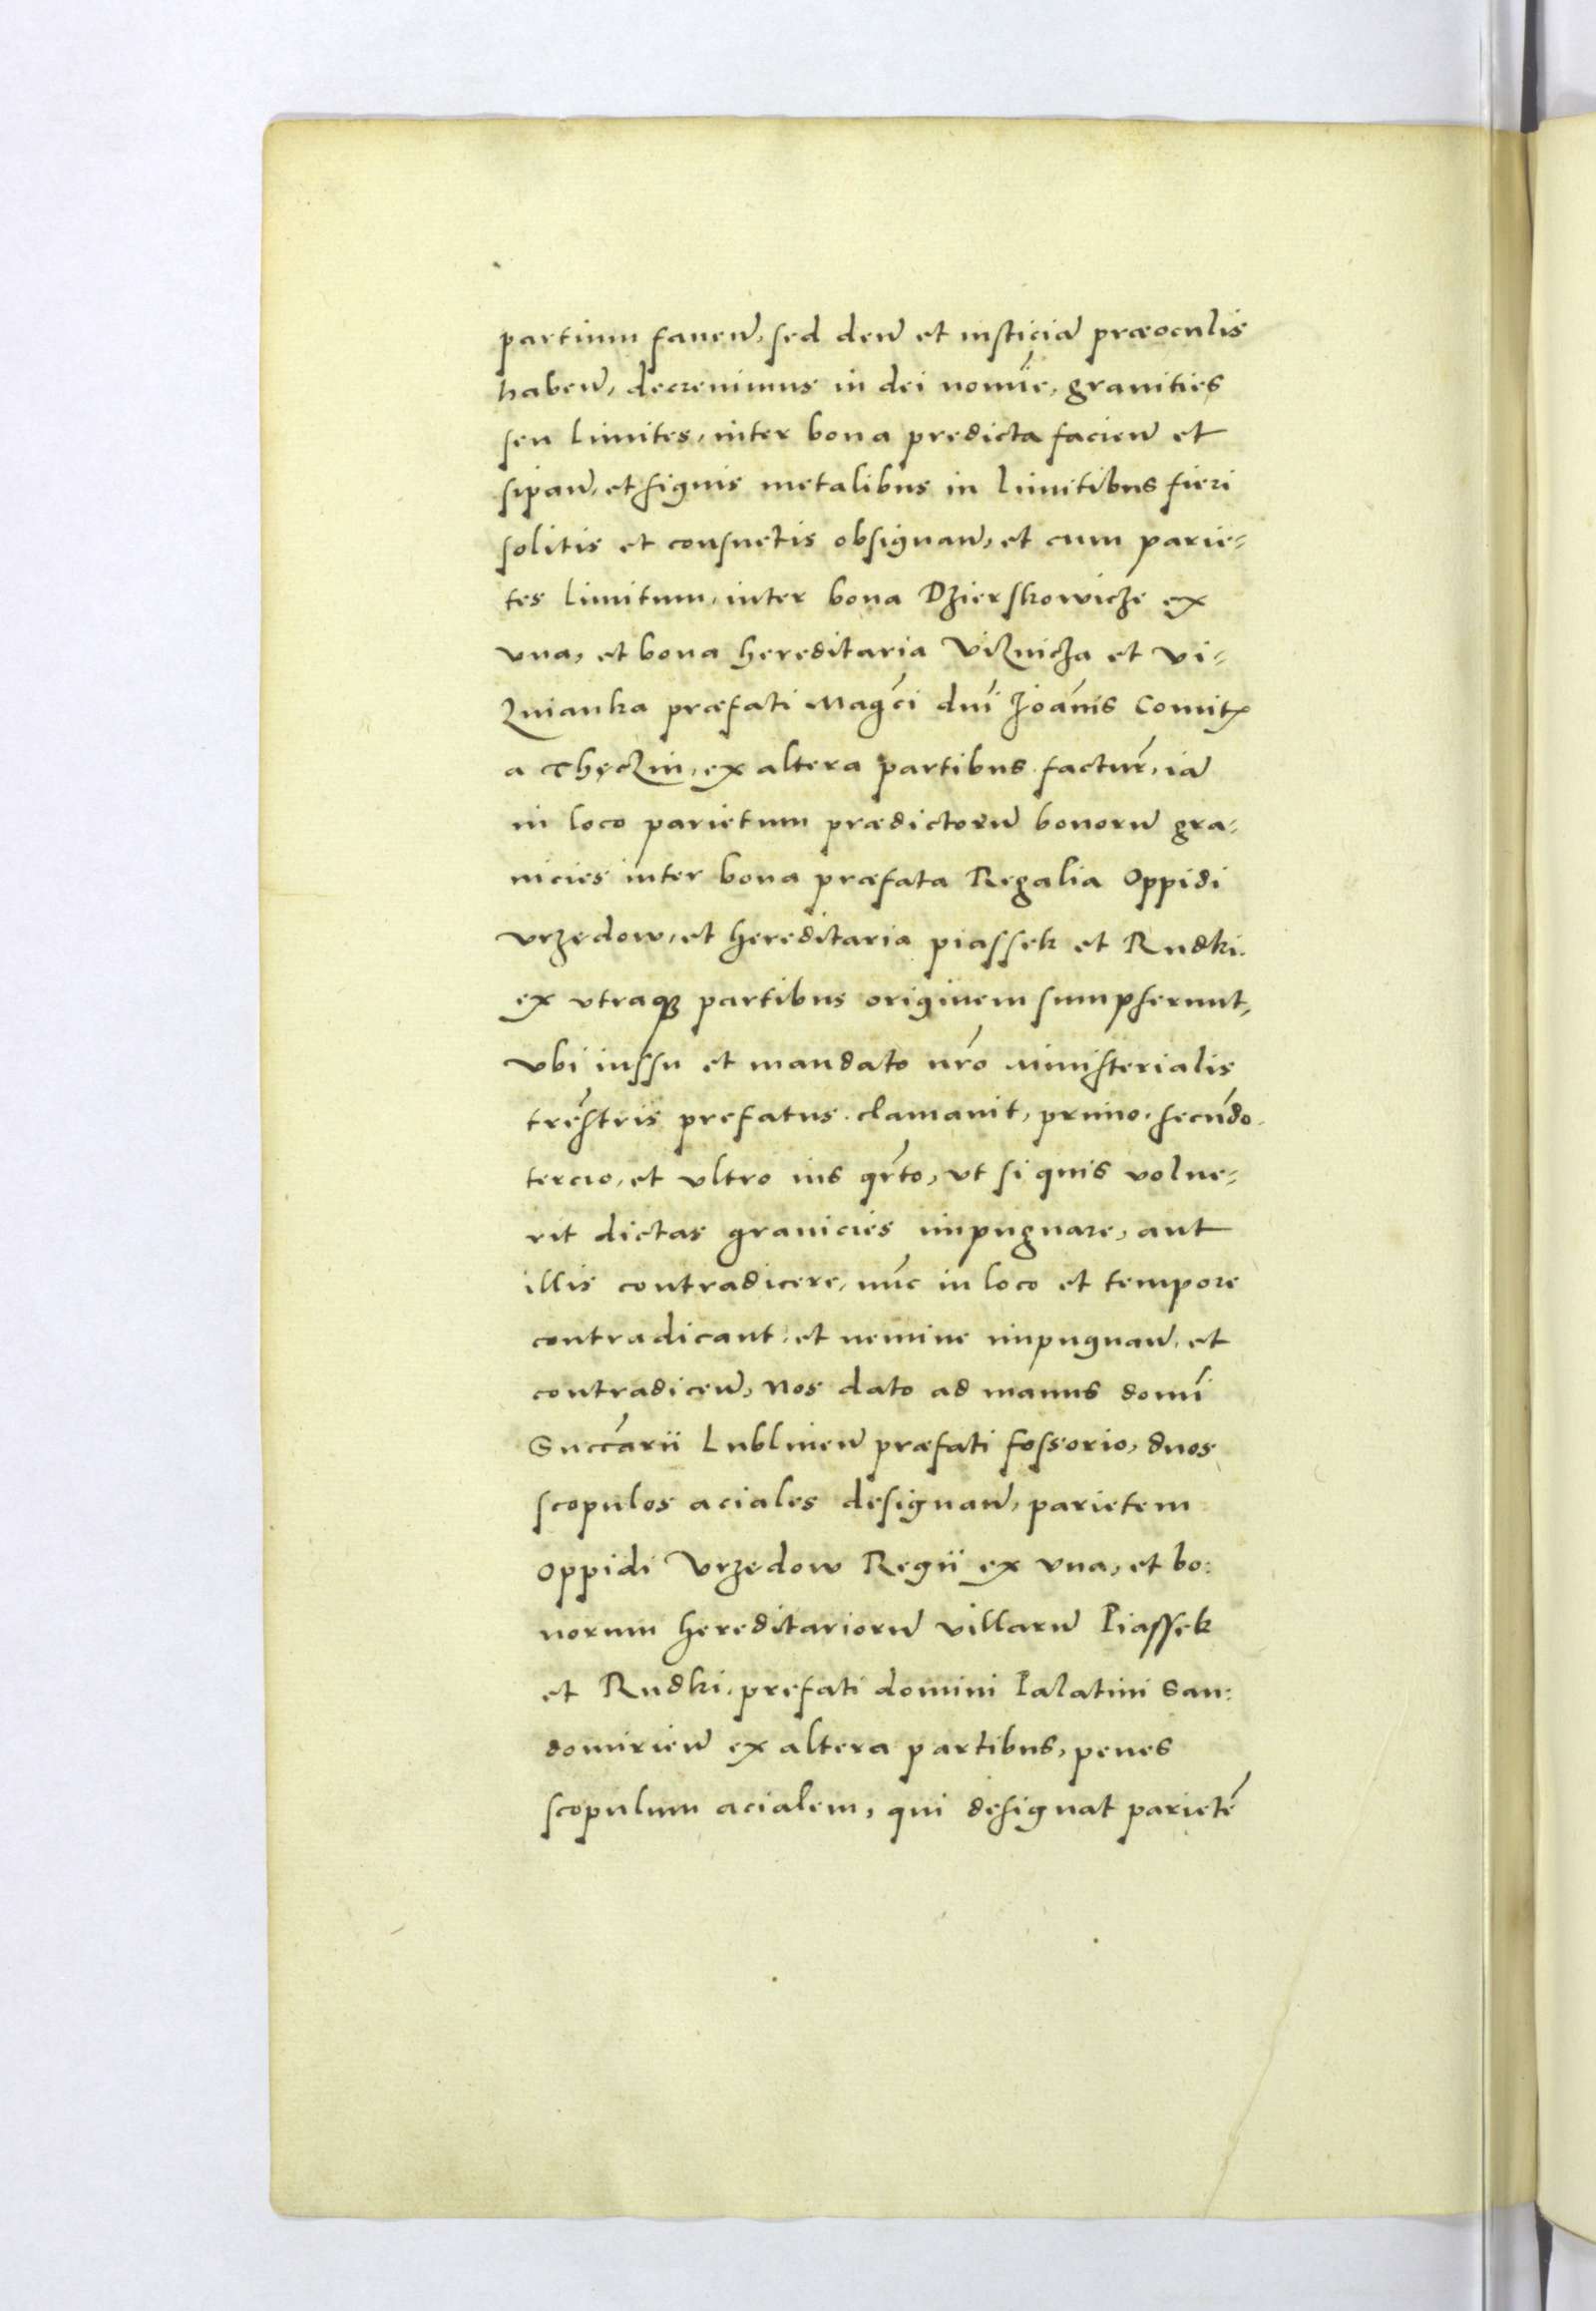 partium faueñ, sed deũ et iusticiã præoculis
habeñ, decreuimus in dei nomĩe, granities
seu limites, inter bona predicta facieñ et
sipañ, et signis metalibus in limitibus fieri
solitis et consuetis obsignañ, et cum parie-
tes limitum, inter bona Dzierskowicze ex
vna, et bona hereditaria Viznicza et Vi-
znianka præfati Mag̃ci dñi Joãnis Comitꝭ
a Thęczin, ex altera partibus factur̃, iã
in loco parietum prædictorũ bonorũ gra-
nicies inter bona præfata Regalia Oppidi
Vrzędow, et hereditaria piassek et Rudki
ex vtraqꝫ partibus originem sumpserunt,
vbi iussu et mandato nr̃o ministerialis
tre᷃stris prefatus clamauit, primo, secũdo
tercio, et vltro ius qr̃to, vt si quis volue-
rit dictas granicies impugnare, aut
illis contradicere, nũc in loco et tempore
contradicant, et nemine impugnañ, et
contradiceñ, nos dato ad manus domĩ
Succ̃arii Lublineñ præfati fossorio, duos
scopulos aciales designañ, parietem
oppidi Vrzędow Regii ex vna, et bo:
norum hereditariorũ villarũ Piassek
et Rudki, prefati domini Palatini San:
domirieñ ex altera partibus, penes
scopulum acialem, qui designat parietẽ